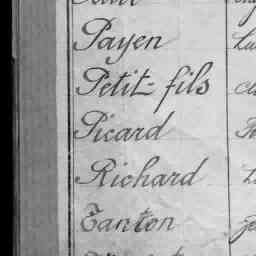 Payen
Petit-fils
Picard
Richard
Tanton